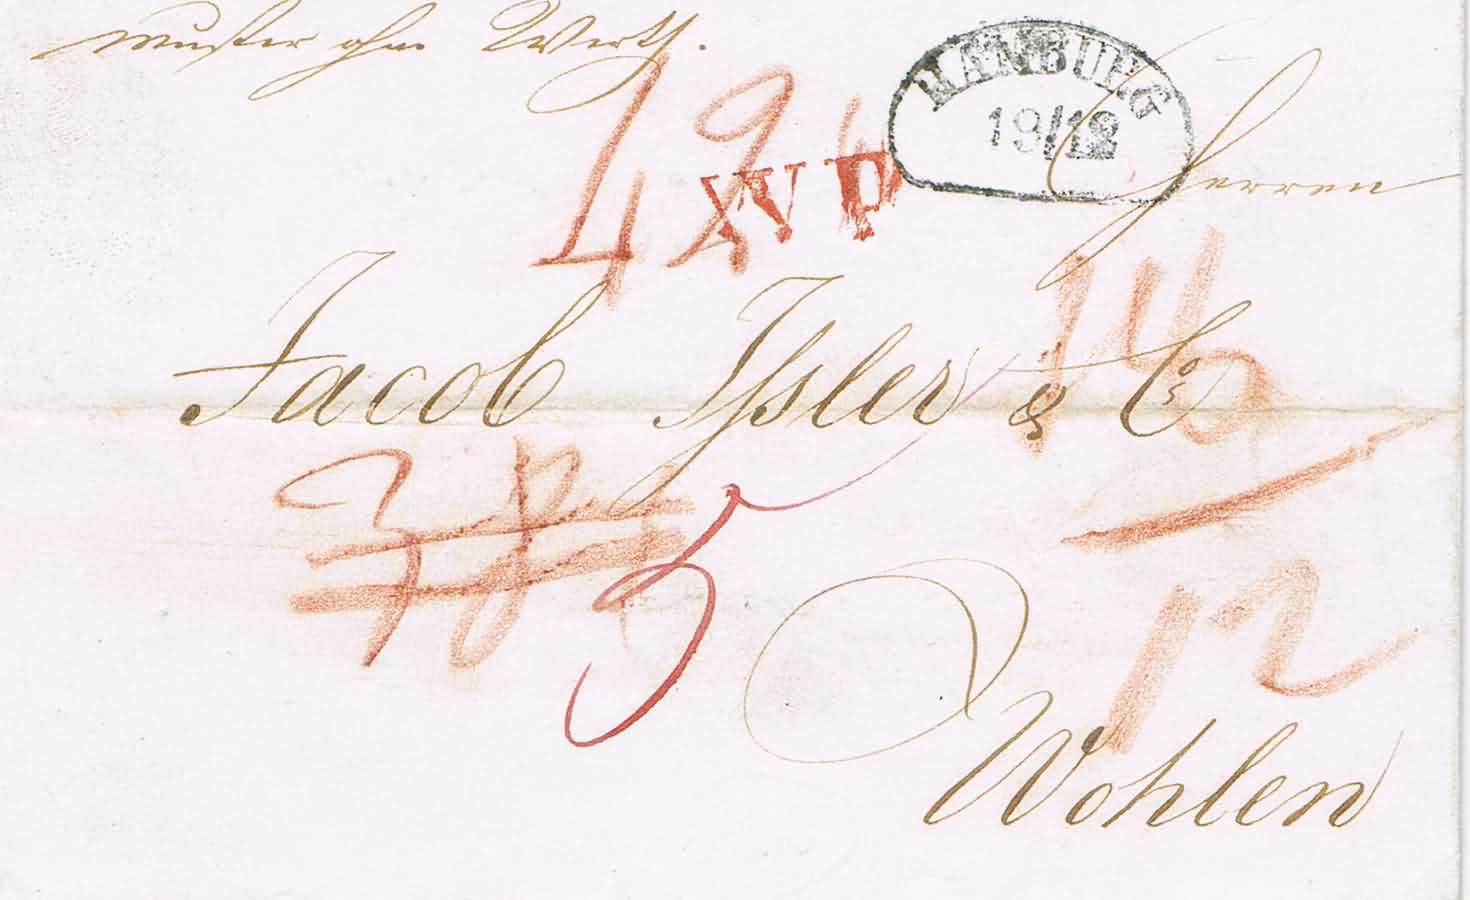 Muster ohne Werth.
HAMBURG
19/12
Herren
XVP
Jacob Isler & Co
5
12
Wohlen